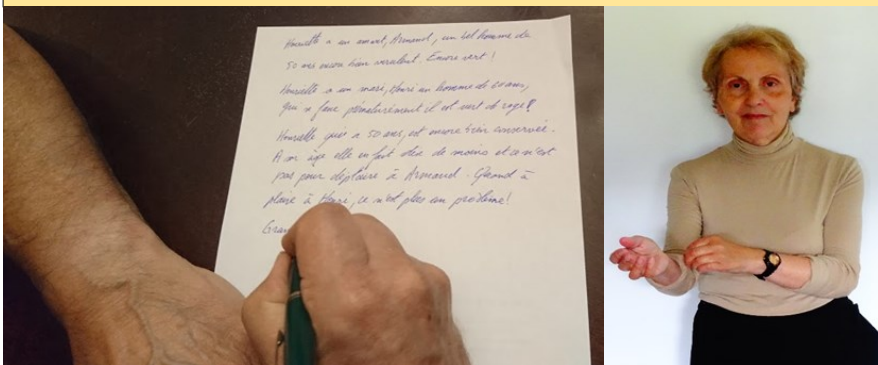 Henriette a un amant, Armand, un bel homme de
50 ans encore bien virulent. Encore vert !
Henriette a un mari, Henri un homme de 60 ans,
qui se fane prématurément il est vert de rage !!
Henriette qui a 50 ans, est encore bien conservée.
A son âge elle en fait deux de moins et ce n'est
pas pour déplaire à Armand. Quand à
plaire à Henri, ce n'est plus un problème !